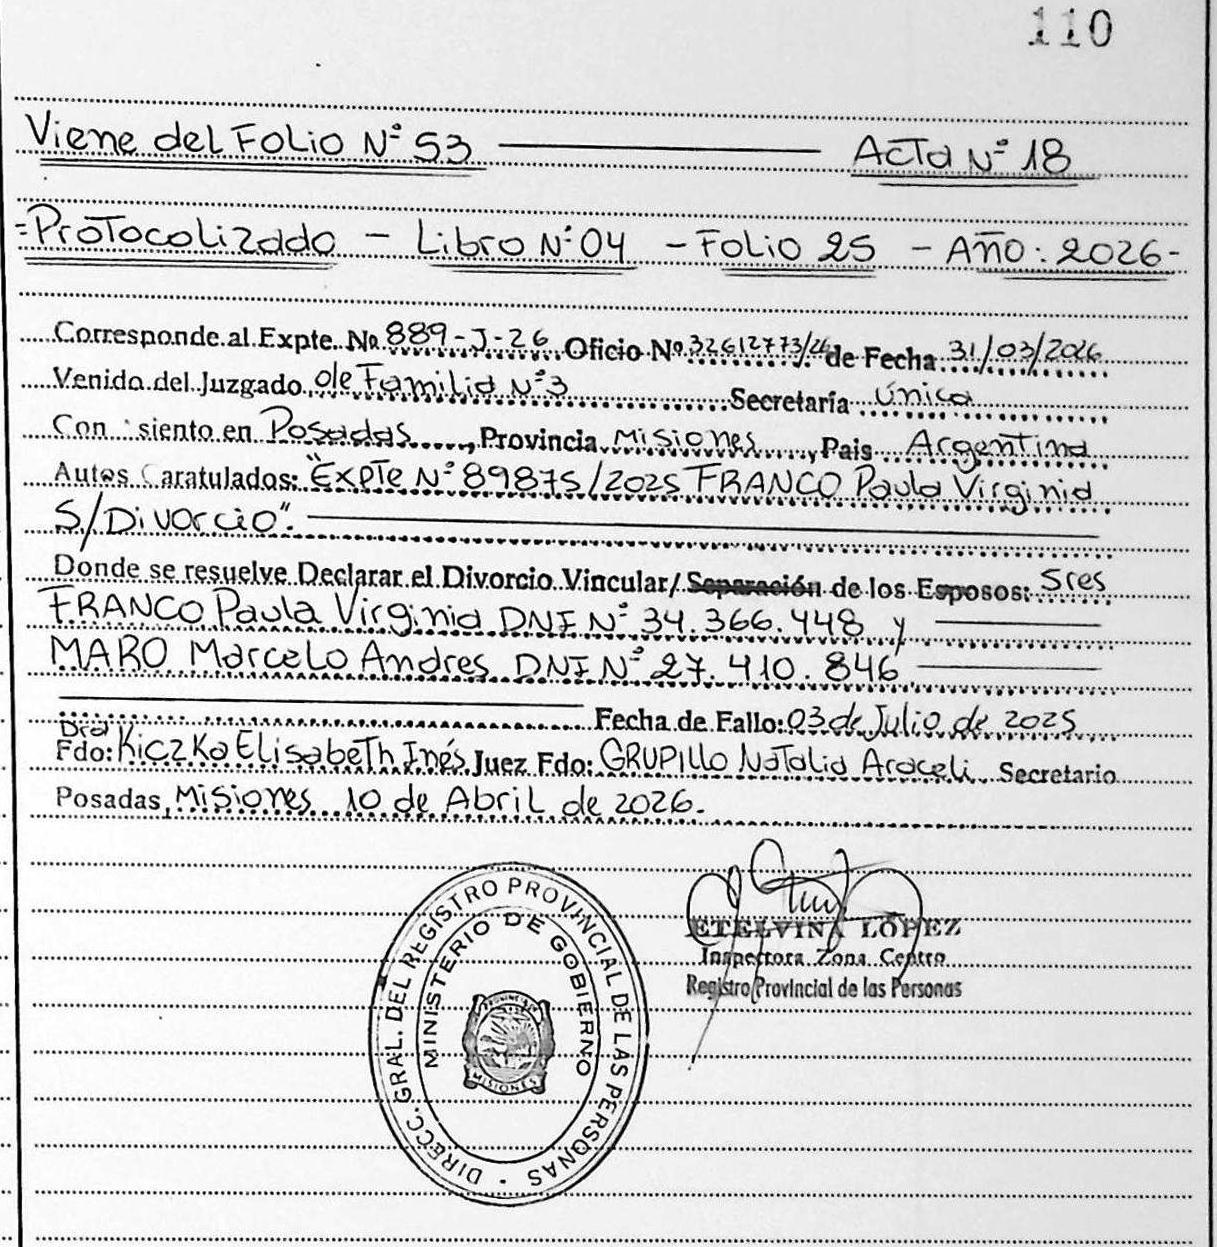 110
Viene del Folio N° 53 Acta N° 18
=Protocolizado - Libro N° 04 - Folio 25 - Año: 2026-
Corresponde al Expte. No 889-J-26 Oficio Nº 32612773/26 de Fecha 31/03/2026
Venido del Juzgado de Familia N°3 Secretaría Única
Con siento en Posadas, Provincia Misiones, Pais Argentina
Autos Caratulados: "Expte N° 89875/2025 FRANCO Paula Virginia
S/Divorcio".
Donde se resuelve Declarar el Divorcio Vincular/ Separación de los Esposos: Sres
FRANCO Paula Virginia DNI N° 34.366.448 y
MARO Marcelo Andres DNI N° 27.410.846
Fecha de Fallo: 03 de Julio de 2025
Fdo: Dra Kiczka Elisabeth Inés Juez Fdo: GRUPILLO Natalia Araceli Secretario
Posadas, Misiones 10 de Abril de 2026.
ETELVINA LOPEZ
Inspectora Zona Centro
Registro Provincial de las Personas
DIRECC. GRAL. DEL REGISTRO PROVINCIAL DE LAS PERSONAS
MINISTERIO DE GOBIERNO
MISIONES